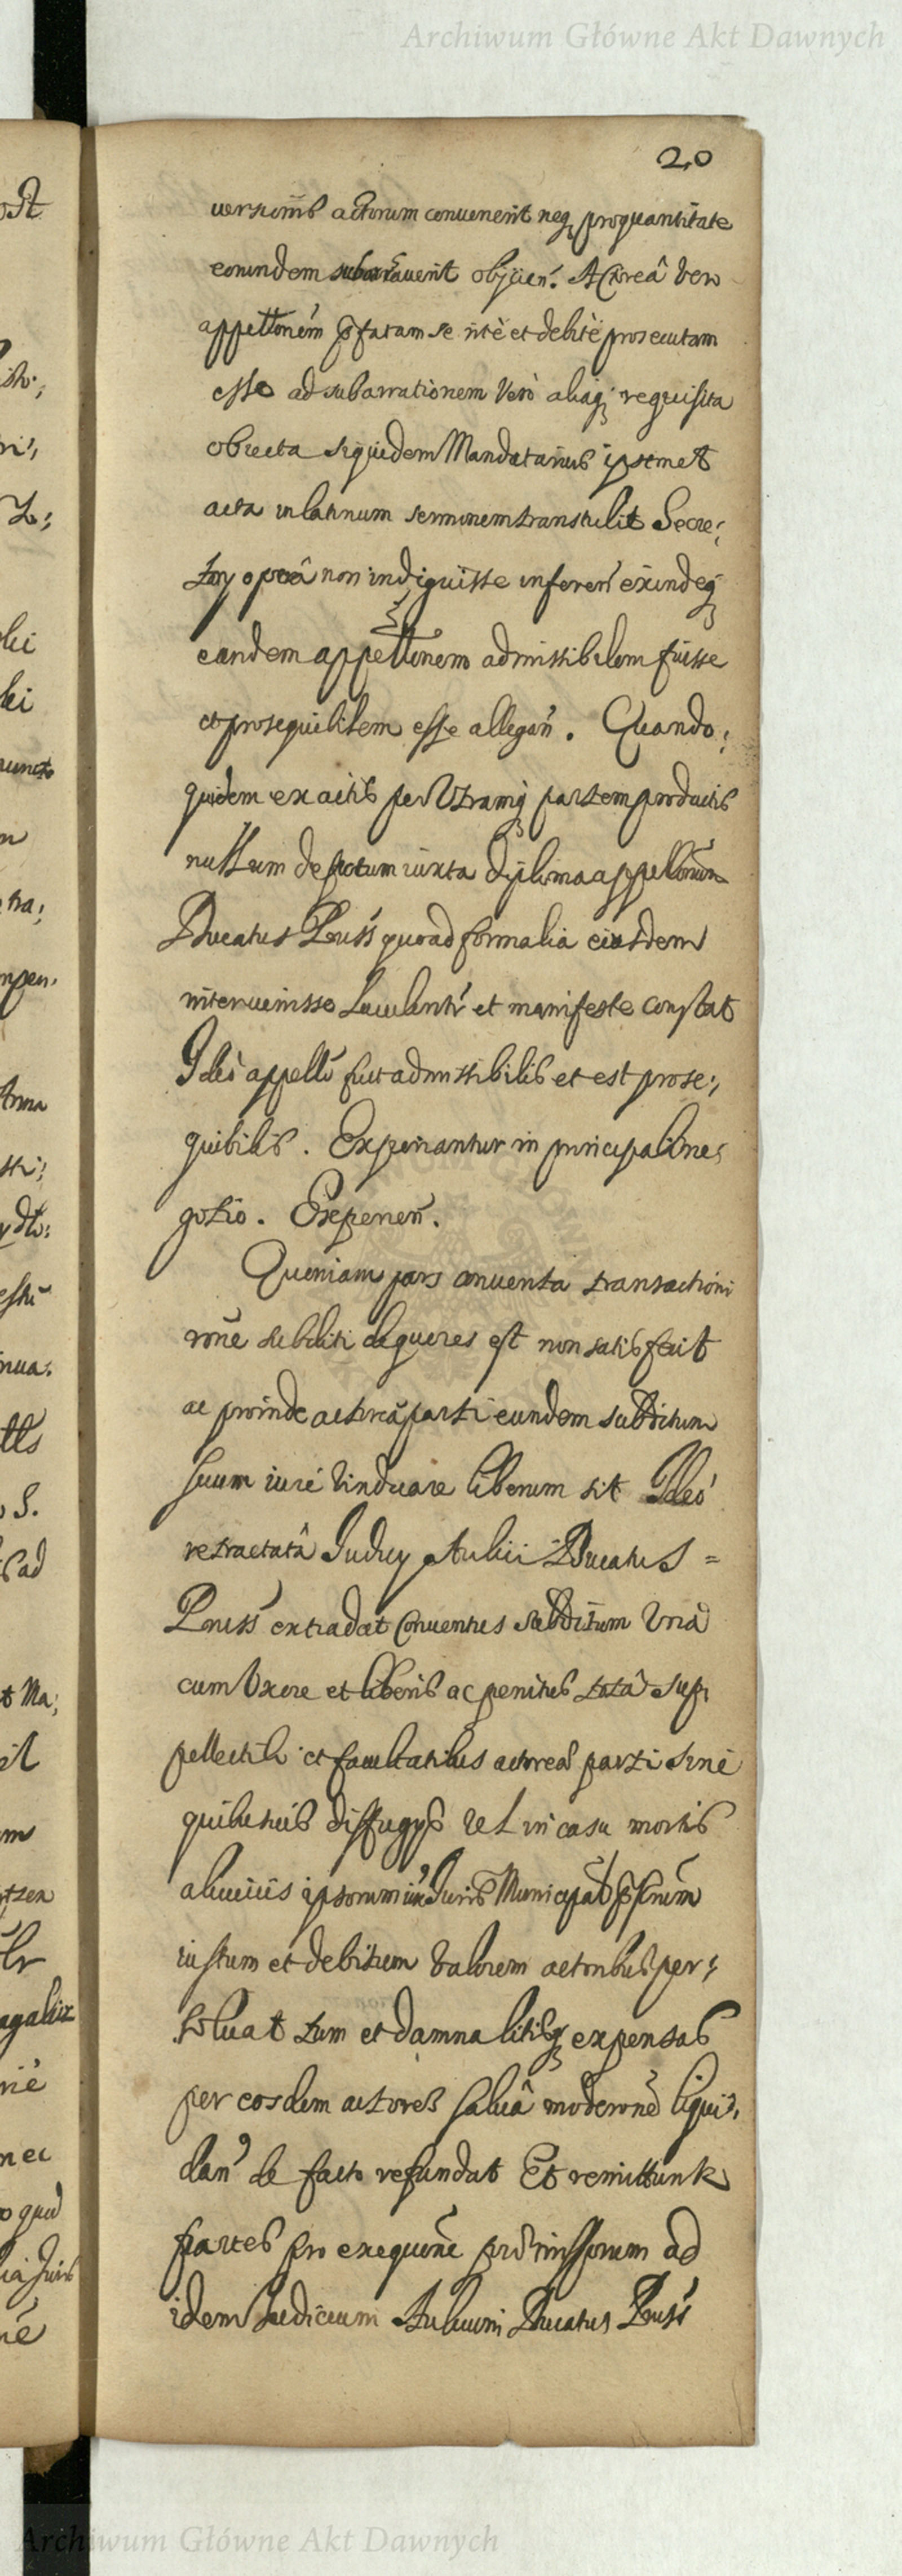 Archiwum Główne Akt Dawnych
20
versionis actorum convenerit neq proquantitate
eorundem subarraverit objicien. Actoreâ vero
appellonem pfatam se rite et debite prosecutam
esse ad subarrationem vero aliaq requisita
obiecta siquidem Mandatarius ipsemet
acta in latinum sermonem transtulit Secre:
tarij operâ non indiguisse inferen exindeq
eandem appellonem admissibilem fuisse
et prosequibilem esse allegan. Quando:
quidem ex actis per Utramq partem productis
nullum defectum iuxta diploma appellonum
Ducatus Pruss quoad formalia eiusdem
intervenisse luculentr et manifeste constat
Ideo appello fuit admissibilis et est prose:
quibilis. Experiantur in principali ne:
gotio. Experien.
Quoniam pars conventa transactioni
rone subditi de quo res est non satisfecit
ac proinde actoreæ parti eundem subditum
suum iure vindicare liberum sit Ideo
retractatâ Judicij Aulici Ducatus =
Pruss extradat Conventus subditum Unâ
cum Uxore et liberis ac penitus totâ sup:
pellectili et facultatibus actoreæ parti sine
quibusvis diffugijs vel in casu mortis
alicuius ipsorum Juris Municipal
iustum et debitum valorem actoribus per:
soluat tum et damna litisq expensas
per eosdem actores salvâ moderone liqui:
dan de facto refundat Et remittunt
partes pro exequone pmissorum ad
idem Judicium Aulicum Ducatus Pruss
ost
hi
ki
m
tra:
Anna
nua.
S.
ad
t Ma:
il
nec
o quod
Archiwum Główne Akt Dawnych